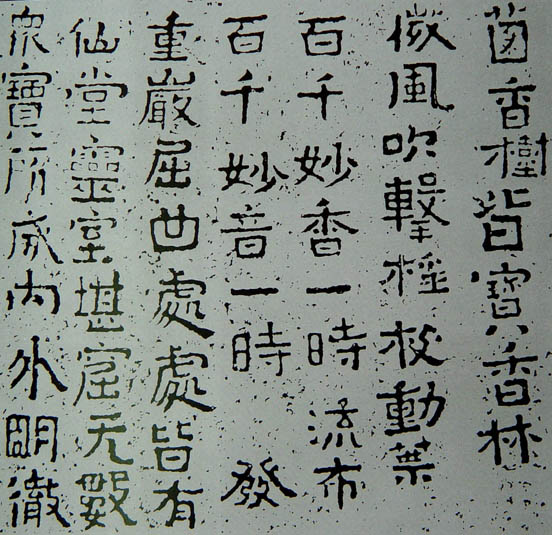 香樹皆寶香林
微風吹擊枝動葉
百千妙香一時流布
百千妙音一時發
重巖屈曲處處皆有
仙堂靈室堪窟无數
眾寶所成內外明徹